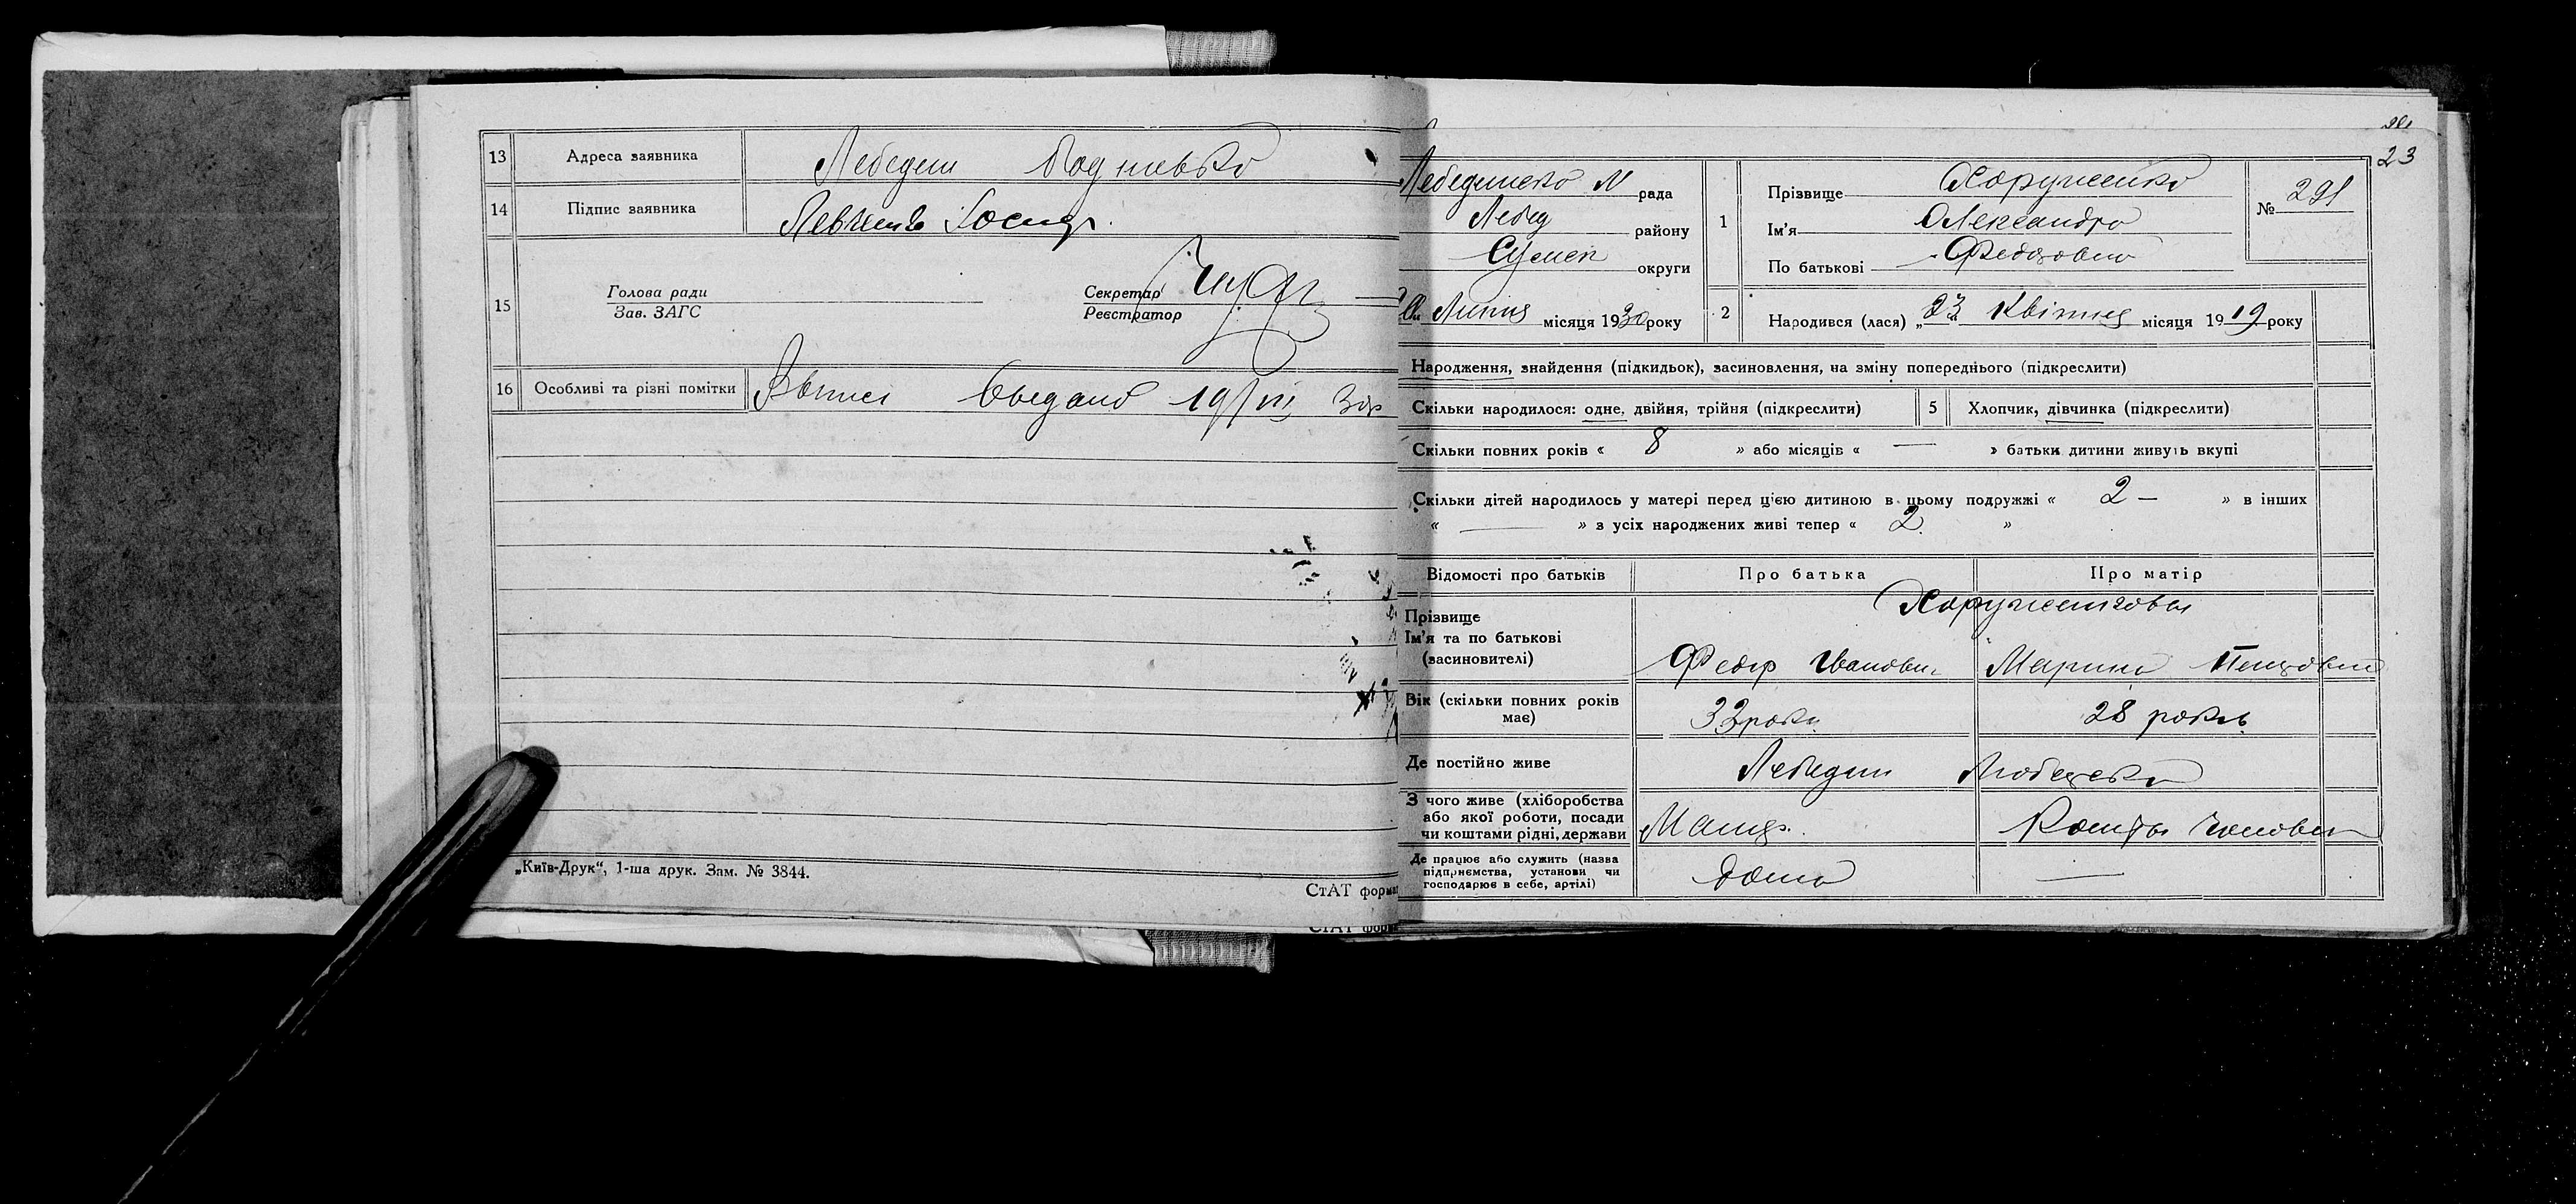 13 Адреса заявника Лебедин
14 Підпис заявника
15 Голова ради
Зав. ЗАГС
Секретар
Реєстратор
16 Особливі та різні помітки Витяг видано 19/VII 30р
„Київ-Друк“, 1-ша друк. Зам. № 3844.
СтАТ форма
СтАТ форма
23
рада
Лебед району
Сумск округи
Липня місяця 1930 року
1 Прізвище Харужейко
Ім'я Олександра
По батькові Федоровна
№ 291
2 Народився (лася) „23“ Квітня місяця 1919 року
Народження, знайдення (підкидьок), засиновлення, на зміну попереднього (підкреслити)
Скільки народилося: одне, двійня, трійня (підкреслити) 5 Хлопчик, дівчинка (підкреслити)
Скільки повних років « 8 » або місяців « — » батьки дитини живуть вкупі
Скільки дітей народилось у матері перед цією дитиною в цьому подружжі « 2 — » в інших
« — » з усіх народжених живі тепер « 2 »
Відомості про батьків Про батька Про матір
Прізвище
Ім'я та по батькові
(засиновителі)
Федір Іванович Марина
Вік (скільки повних років
має)
33 роки 28 років
Де постійно живе Лебедин
З чого живе (хліборобства
або якої роботи, посади
чи коштами рідні, держави
Кошты
Де працює або служить (назва
підприємства, установи чи
господарює в себе, артілі)
дома —